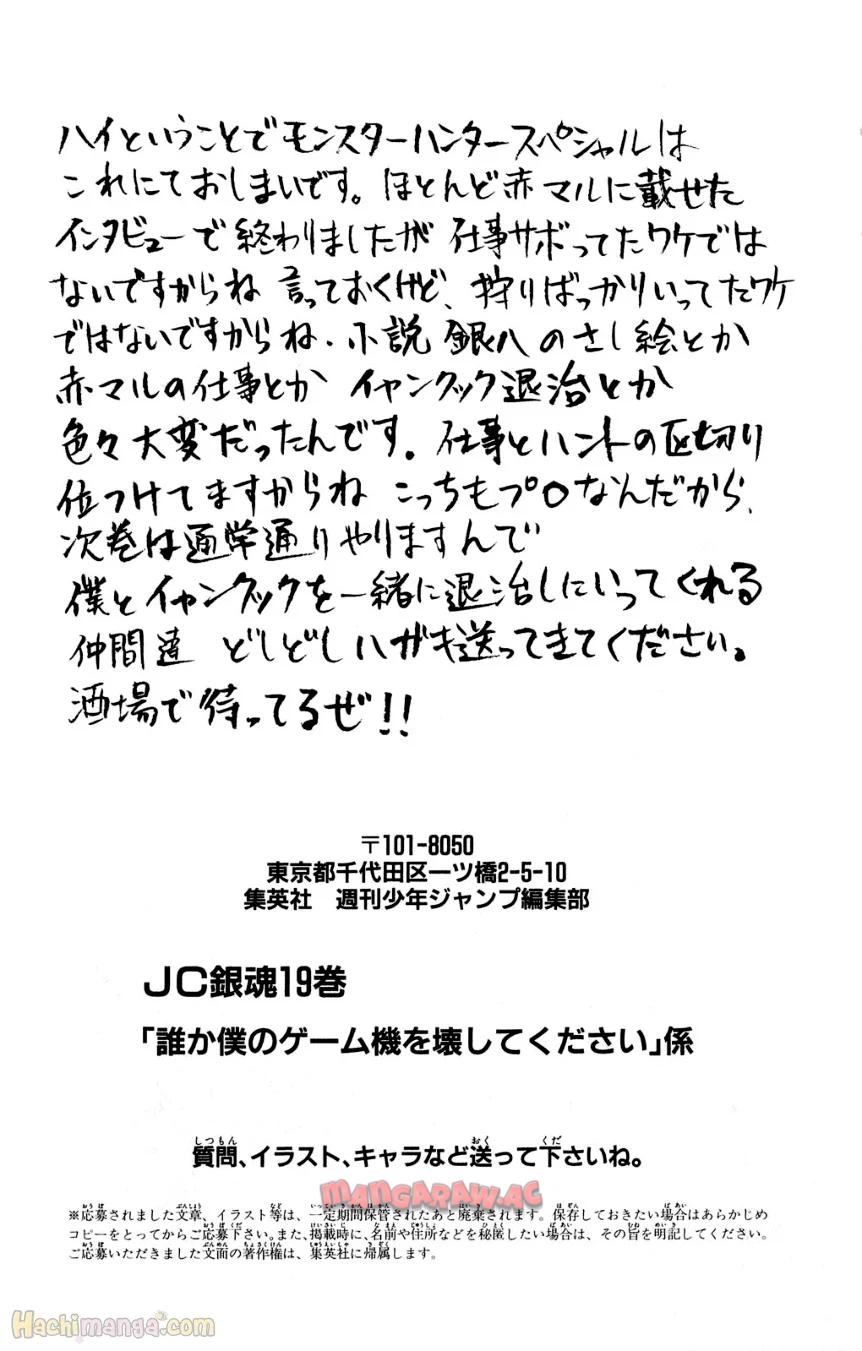 ハイということでモンスターハンタースペシャルは
これにておしまいです。ほとんど赤マルに載せた
インタビューで終わりましたが 仕事サボってたワケでは
ないですからね 言っておくけど、狩りばっかりいってたワケ
ではないですからね、小説 銀八 のさし絵とか
赤マルの仕事とか イャンクック退治とか
色々大変だったんです。仕事とハントの区切り
位つけてますからね こっちもプロなんだから、
次巻は通常通りやりますんで
僕とイャンクックを一緒に退治しにいってくれる
仲間達 どしどしハガキ送ってきてください。
酒場で待ってるぜ!!
〒101-8050
東京都千代田区一ツ橋2-5-10
集英社 週刊少年ジャンプ編集部
JC銀魂19巻
「誰か僕のゲーム機を壊してください」係
質問、イラスト、キャラなど送って下さいね。
MANGARAW.AC
※応募されました文章、イラスト等は、一定期間保管されたあと廃棄されます。保存しておきたい場合はあらかじめ
コピーをとってからご応募下さい。また、掲載時に、名前や住所などを秘匿したい場合は、その旨を明記してください。
ご応募いただきました文面の著作権は、集英社に帰属します。
Hachimanga.com